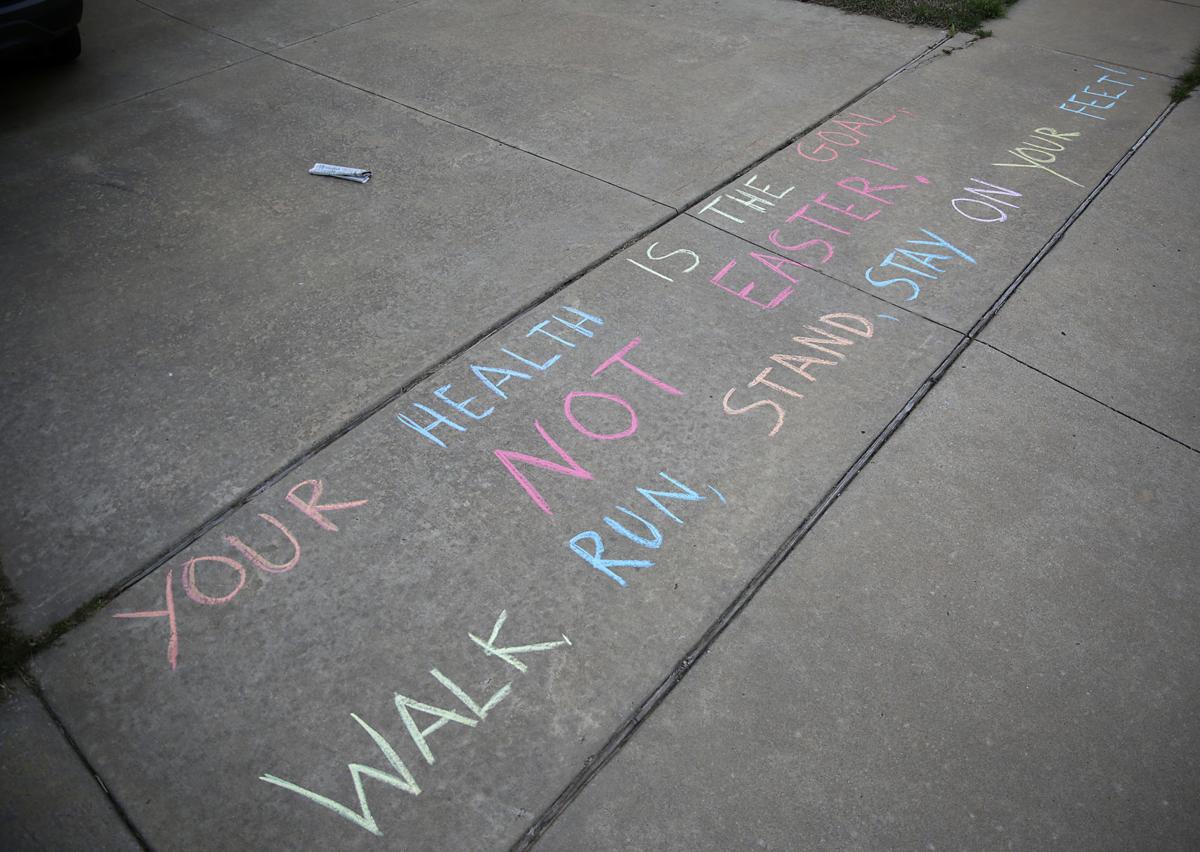 YOUR HEALTH IS THE GOAL,
NOT EASTER!
WALK, RUN, STAND, STAY ON YOUR FEET!